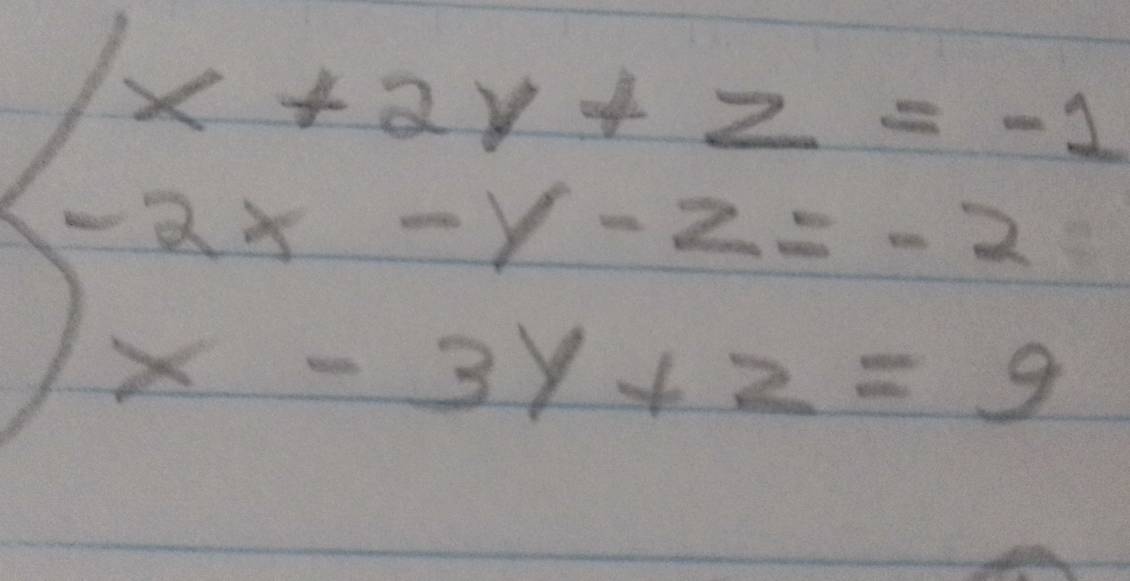 x + 2y + z = -1
-2x - y - z = -2
x - 3y + z = 9